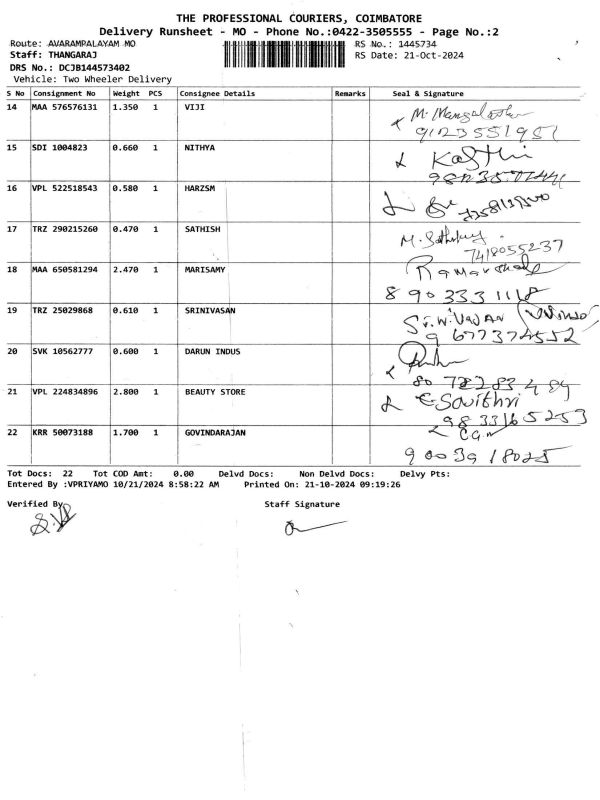 THE PROFESSIONAL COURIERS, COIMBATORE
Delivery Runsheet - MO - Phone No.:0422-3505555 - Page No.:2
Route: AVARAMPALAYAM MO RS No.: 1445734
Staff: THANGARAJ RS Date: 21-Oct-2024
DRS No.: DCJB144573402
Vehicle: Two Wheeler Delivery
S No Consignment No Weight PCS Consignee Details Remarks Seal & Signature
14 MAA 576576131 1.350 1 VIJI
9123551951
15 SDI 1004823 0.660 1 NITHYA
16 VPL 522518543 0.580 1 HARZSM
17 TRZ 290215260 0.470 1 SATHISH
7418055237
18 MAA 650581294 2.470 1 MARISAMY
8903331118
19 TRZ 25029868 0.610 1 SRINIVASAN
9677374552
20 SVK 10562777 0.600 1 DARUN INDUS
21 VPL 224834896 2.800 1 BEAUTY STORE
E. Savithri
9833165253
22 KRR 50073188 1.700 1 GOVINDARAJAN
9003918025
Tot Docs: 22 Tot COD Amt: 0.00 Delvd Docs: Non Delvd Docs: Delvy Pts:
Entered By :VPRIYAMO 10/21/2024 8:58:22 AM Printed On: 21-10-2024 09:19:26
Verified By Staff Signature